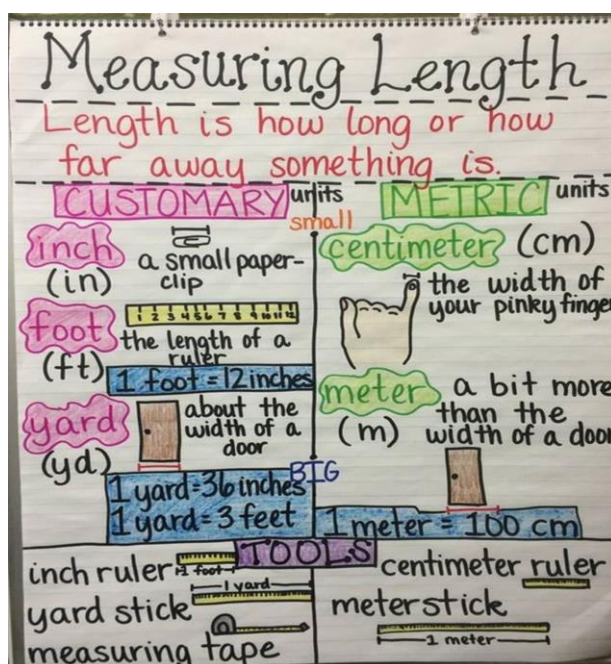 Measuring Length
Length is how long or how
far away something is.
CUSTOMARY units
inch
(in)
a small paper-
clip
foot
(ft)
1 2 3 4 5 6 7 8 9 10 11 12
the length of a
ruler
1 foot = 12 inches
yard
(yd)
about the
width of a
door
1 yard = 36 inches
1 yard = 3 feet
small
BIG
METRIC units
centimeter (cm)
the width of
your pinky finger
meter
(m)
a bit more
than the
width of a door
1 meter = 100 cm
TOOLS
inch ruler
1 foot
yard stick
1 yard
measuring tape
centimeter ruler
meterstick
1 meter